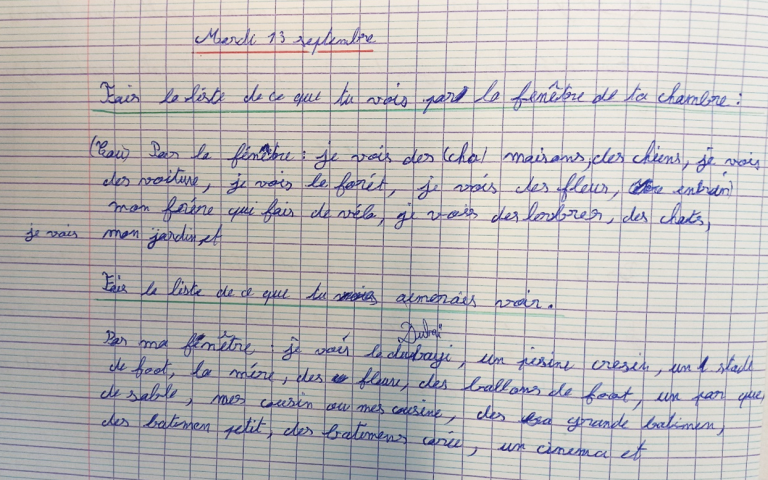 Mardi 13 septembre
Fais la liste de ce que tu vois par la fenêtre de ta chambre :
Par la fenêtre : je vois des (cha) maisons, des chiens, je vois
des voiture, je vois le forét, je vois des fleur, entrain
mon frére qui fais de vélo, je vois des des chats,
je vois mon jardin, et
Fais la liste de ce que tu aimerais voir.
Par ma fenêtre : je vois le Dubaï, un stade
de foot, la mére, des fleure, des ballons de foot, un par que
de sable, mes cousin ou mes cousine, des grande batimen,
des batimen petit, des batimens carée, un cinema et